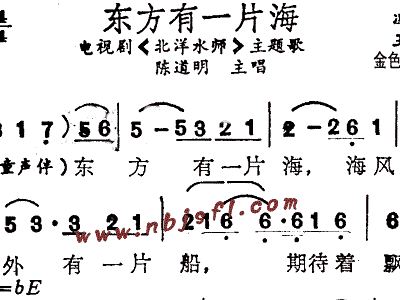 4 东方有一片海
4 电视剧《北洋水师》主题歌
陈道明 主唱
金色
3 1 7 ) 5 6 | 5 - 5 3 2 1 | 2 - 2 6 1 |
童声伴) 东 方 有 一 片 海, 海 风
5 3 · 3 2 1 | 2 1 6 6 · 6 1 6 |
www.nbjsfl.com
外 有 一 片 船, 期 待 着 飘
=bE